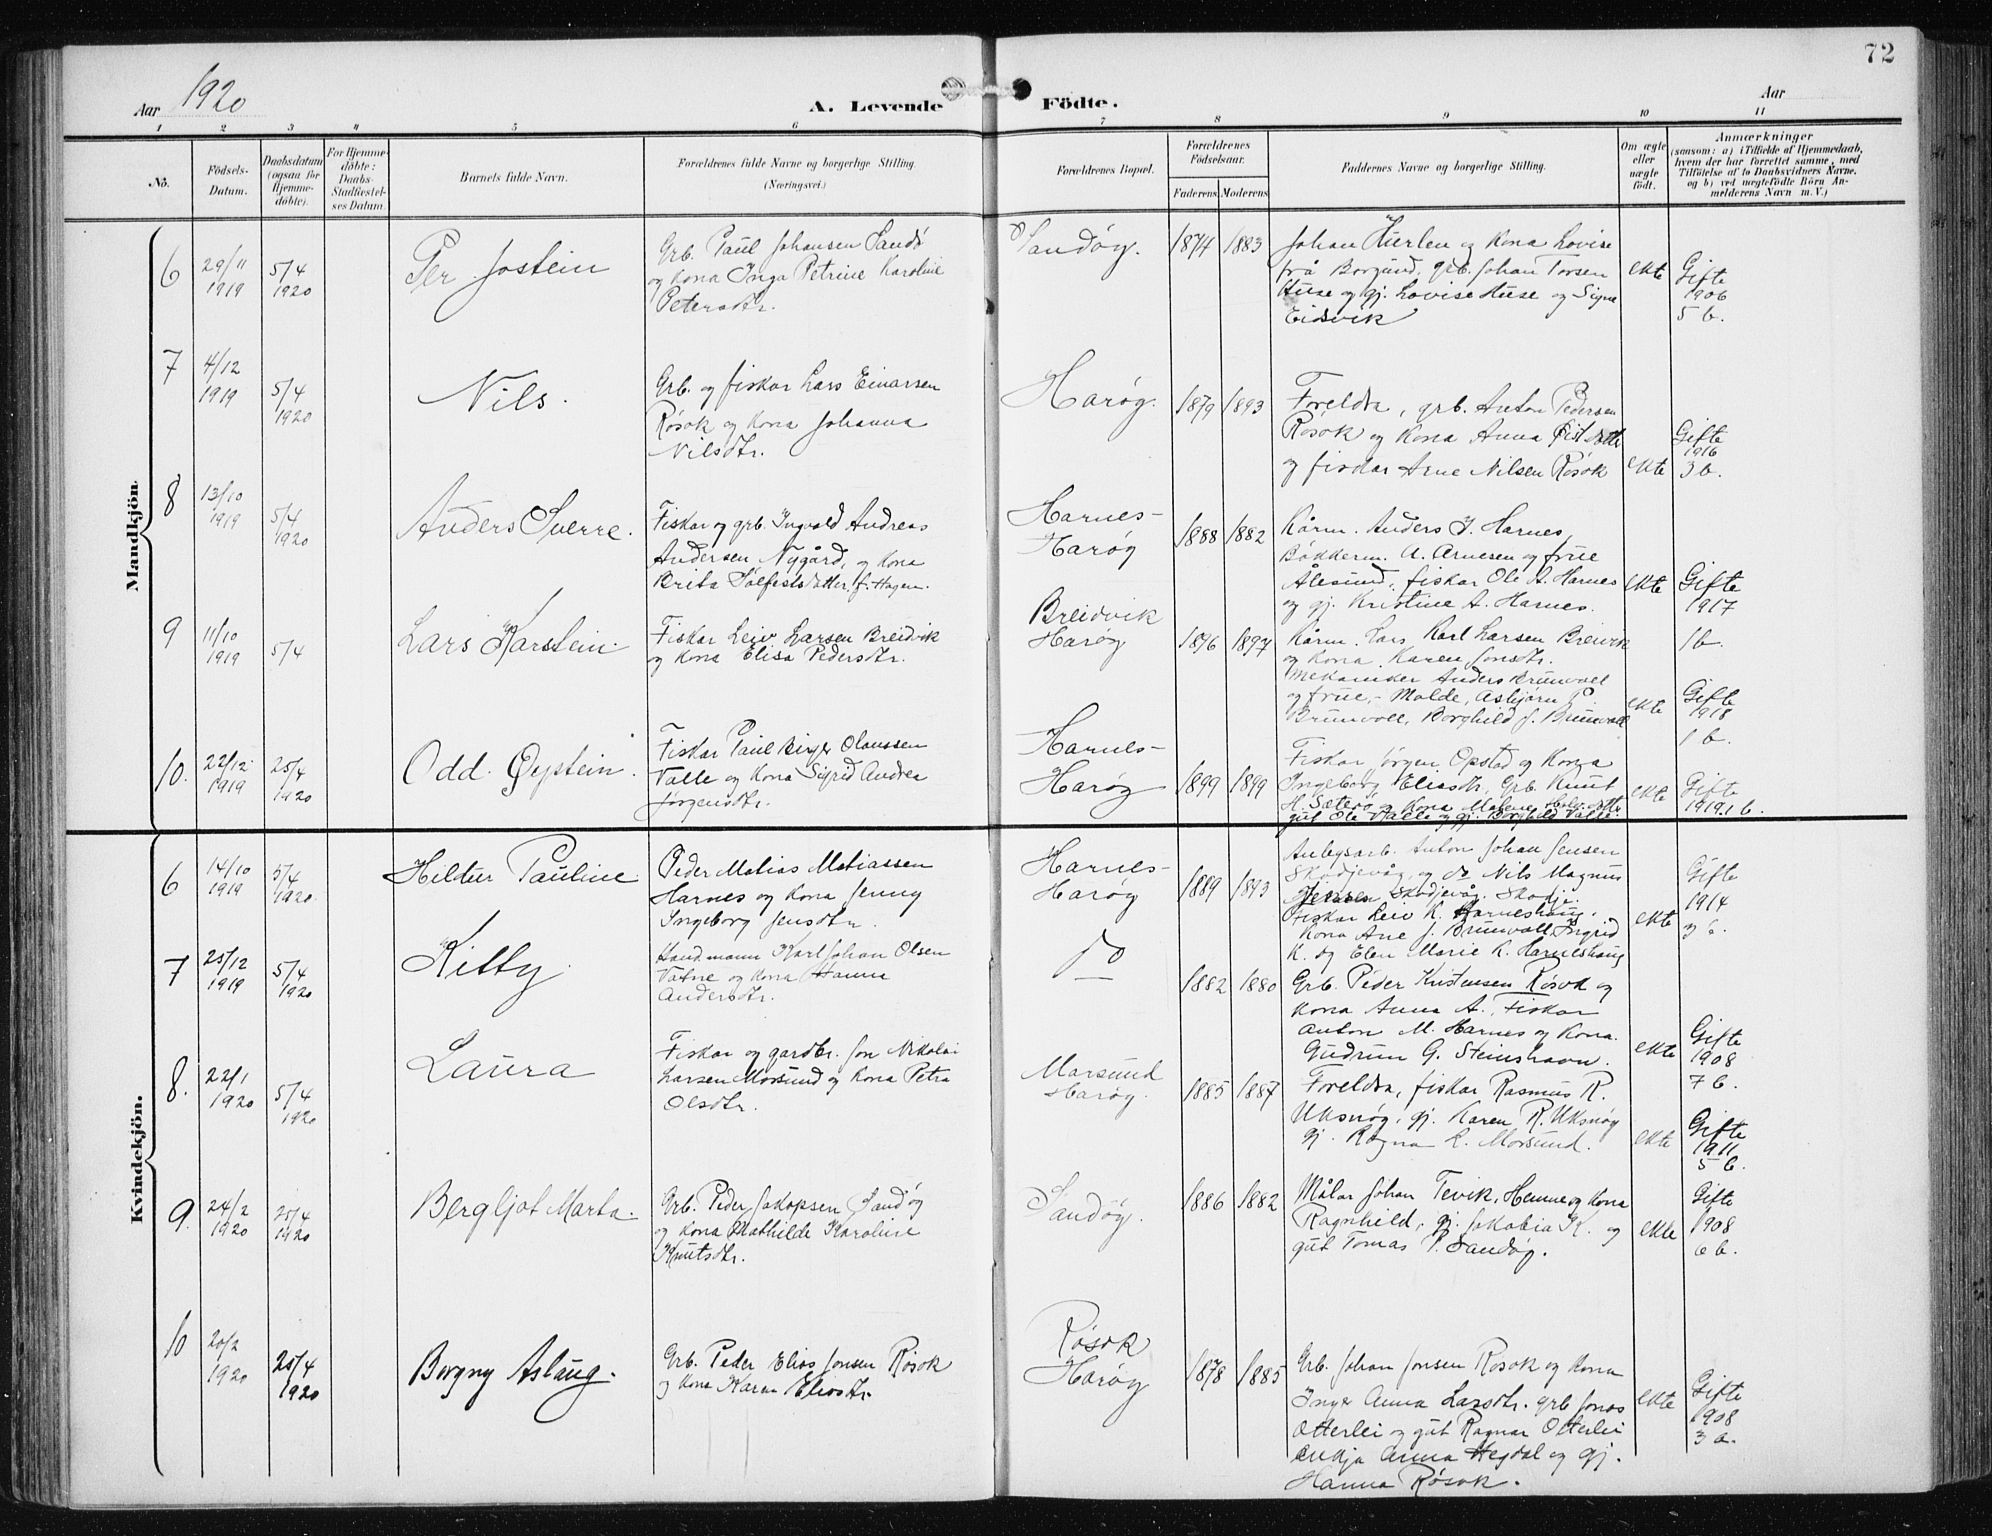 72
Aar 1920
A. Levende Födte.
Aar
1 2 3 4 5 6 7 8 9 10 11
No.
Födsels-Datum.
Daabsdatum (ogsaa for Hjemme-döbte).
For Hjemme-döbte: Daabs-Stadfæstel-ses Datum.
Barnets fulde Navn.
Forældrenes fulde Navne og borgerlige Stilling.
(Næringsvei.)
Forældrenes Bopæl.
Forældrenes Födselsaar.
Faderens. Moderens.
Faddernes Navne og borgerlige Stilling.
Om ægte eller uægte födt.
Anmærkninger
(saasom: a) i Tilfælde af Hjemmedaab,
hvem der har forrettet samme, med
Tilföielse af to Daabsvidners Navne,
og b) ved uægtefödte Börn An-
melderens Navn m. V.)
Mandkjön.
6
29/11 1919
5/4 1920
Per Jostein
Grb. Paul Johansen Sandö
og kona Inga Petrine Karoline
Petersdtr.
Sandøy.
1874 1883
Johan Hierlen og kona Lovise
frå Borgund, grb. Johan Torsen
Huse og gj. Lovise Huse og Signe
Eidsvik
ekte
Gifte
1906
5 b.
7
4/12 1919
5/4 1920
Nils.
Grb. og fiskar Lars Einarsen
Røsok og kona Johanna
Nilsdtr.
Harøy.
1879 1893
Foreldra, grb. Anton Pedersen
Røsok og kona Anna
og fiskar Arne Nilsen Røsok
ekte
Gifte
1916
3 b.
8
13/10 1919
5/4 1920
Anders Sverre.
Fiskar og grb. Ingvald Andreas
Andersen Nygård, og kona
Brita Sølfestsdatter f. Hagen.
Harnes-
Harøy
1888 1882
Kårm. Anders I. Harnes,
Båkkerm. A. Arnesen og frue
Ålesund, fiskar Ole A. Harnes
og gj. Kristine A. Harnes.
ekte
Gifte
1917
1 b.
9
11/10 1919
5/4
Lars Karstein.
Fiskar Leiv Larsen Breidvik
og kona Elisa Pedersdtr.
Breidvik
Harøy
1896 1897
Kårm. Lars Karl Larsen Breivik
og kona Karen Jonsdtr.
Mekaniker Anders Brunvoll
og frue, - Molde, Asbjørn P.
Brunvoll, Borghild J. Brunvoll
ekte
Gifte
1918
1 b.
10.
22/12 1919
25/4 1920
Odd Øystein.
Fiskar Paul Birger Olaussen
Valle og kona Sigrid Andrea
Jørgensdtr.
Harnes-
Harøy
1899 1899
Fiskar Jørgen Opstad og kona
Ingeborg Eliasdtr, Grb. Knut
H. Sæterø og kona Malene
gut Ole Valle og gj. Borghild Valle.
ekte
Gifte
1919. 1 b.
Kvindekjön.
6
14/10 1919
5/4 1920
Hildur Pauline
Peder Matias Matiassen
Harnes og kona Jenny
Ingeborg Jensdtr.
Harnes-
Harøy
1889 1893
Anlegsarb. Anton Johan Jensen
Skodjevåg, og do Nils Magnus
Jensen Skodjevåg. Skodje.
Fiskar Leiv K. Harneshaug,
kona Ane J. Brunvoll, Ingrid
K. og Elen Marie K. Harneshaug
ekte
Gifte
1914
3 b.
7
25/12 1919
5/4 1920
Kitty
Handmann Karl Johan Olsen
Vatne og kona Hanna
Andersdtr.
Do
1882 1880
Grb. Peder Kristensen Røsok og
kona Anna A. Fiskar
Anton M. Harnes og kona.
Gudrun G. Steinshavn.
ekte
Gifte
1908
7 b.
8.
22/1 1920
5/4 1920
Laura
Fiskar og gardbr. Jon Nikolai
Larsen Morsund og kona Petra
Olsdtr.
Morsund
Harøy.
1885 1887
Foreldra, fiskar Rasmus R.
Uksnøy, gj. Karen R. Uksnøy
gj. Ragna L. Morsund.
ekte
Gifte
1911
5 b.
9.
24/2 1920
25/4 1920
Bergljot Marta.
Grb. Peder Jakopsen Sandøy
og kona Mathilde Karoline
Knutsdtr.
Sandøy.
1886 1882
Målar Johan Tevik, Hemne og kona
Ragnhild, gj. Jakobia K. og
gut Tomas P. Sandøy.
ekte
Gifte
1908
6 b.
10
20/2 1920
25/4 1920
Borgny Aslaug.
Grb. Peder Elias Jonsen Røsok
og kona Karen Eliasdtr.
Røsok
Harøy
1878 1885
Grb. Johan Jonsen Røsok og kona
Inger Anna Larsdtr. grb Jonas
Otterlei og gut Ragnar Otterlei
enkja Anna Hegdal og gj.
Hanna Røsok.
ekte
Gifte
1908
3 b.